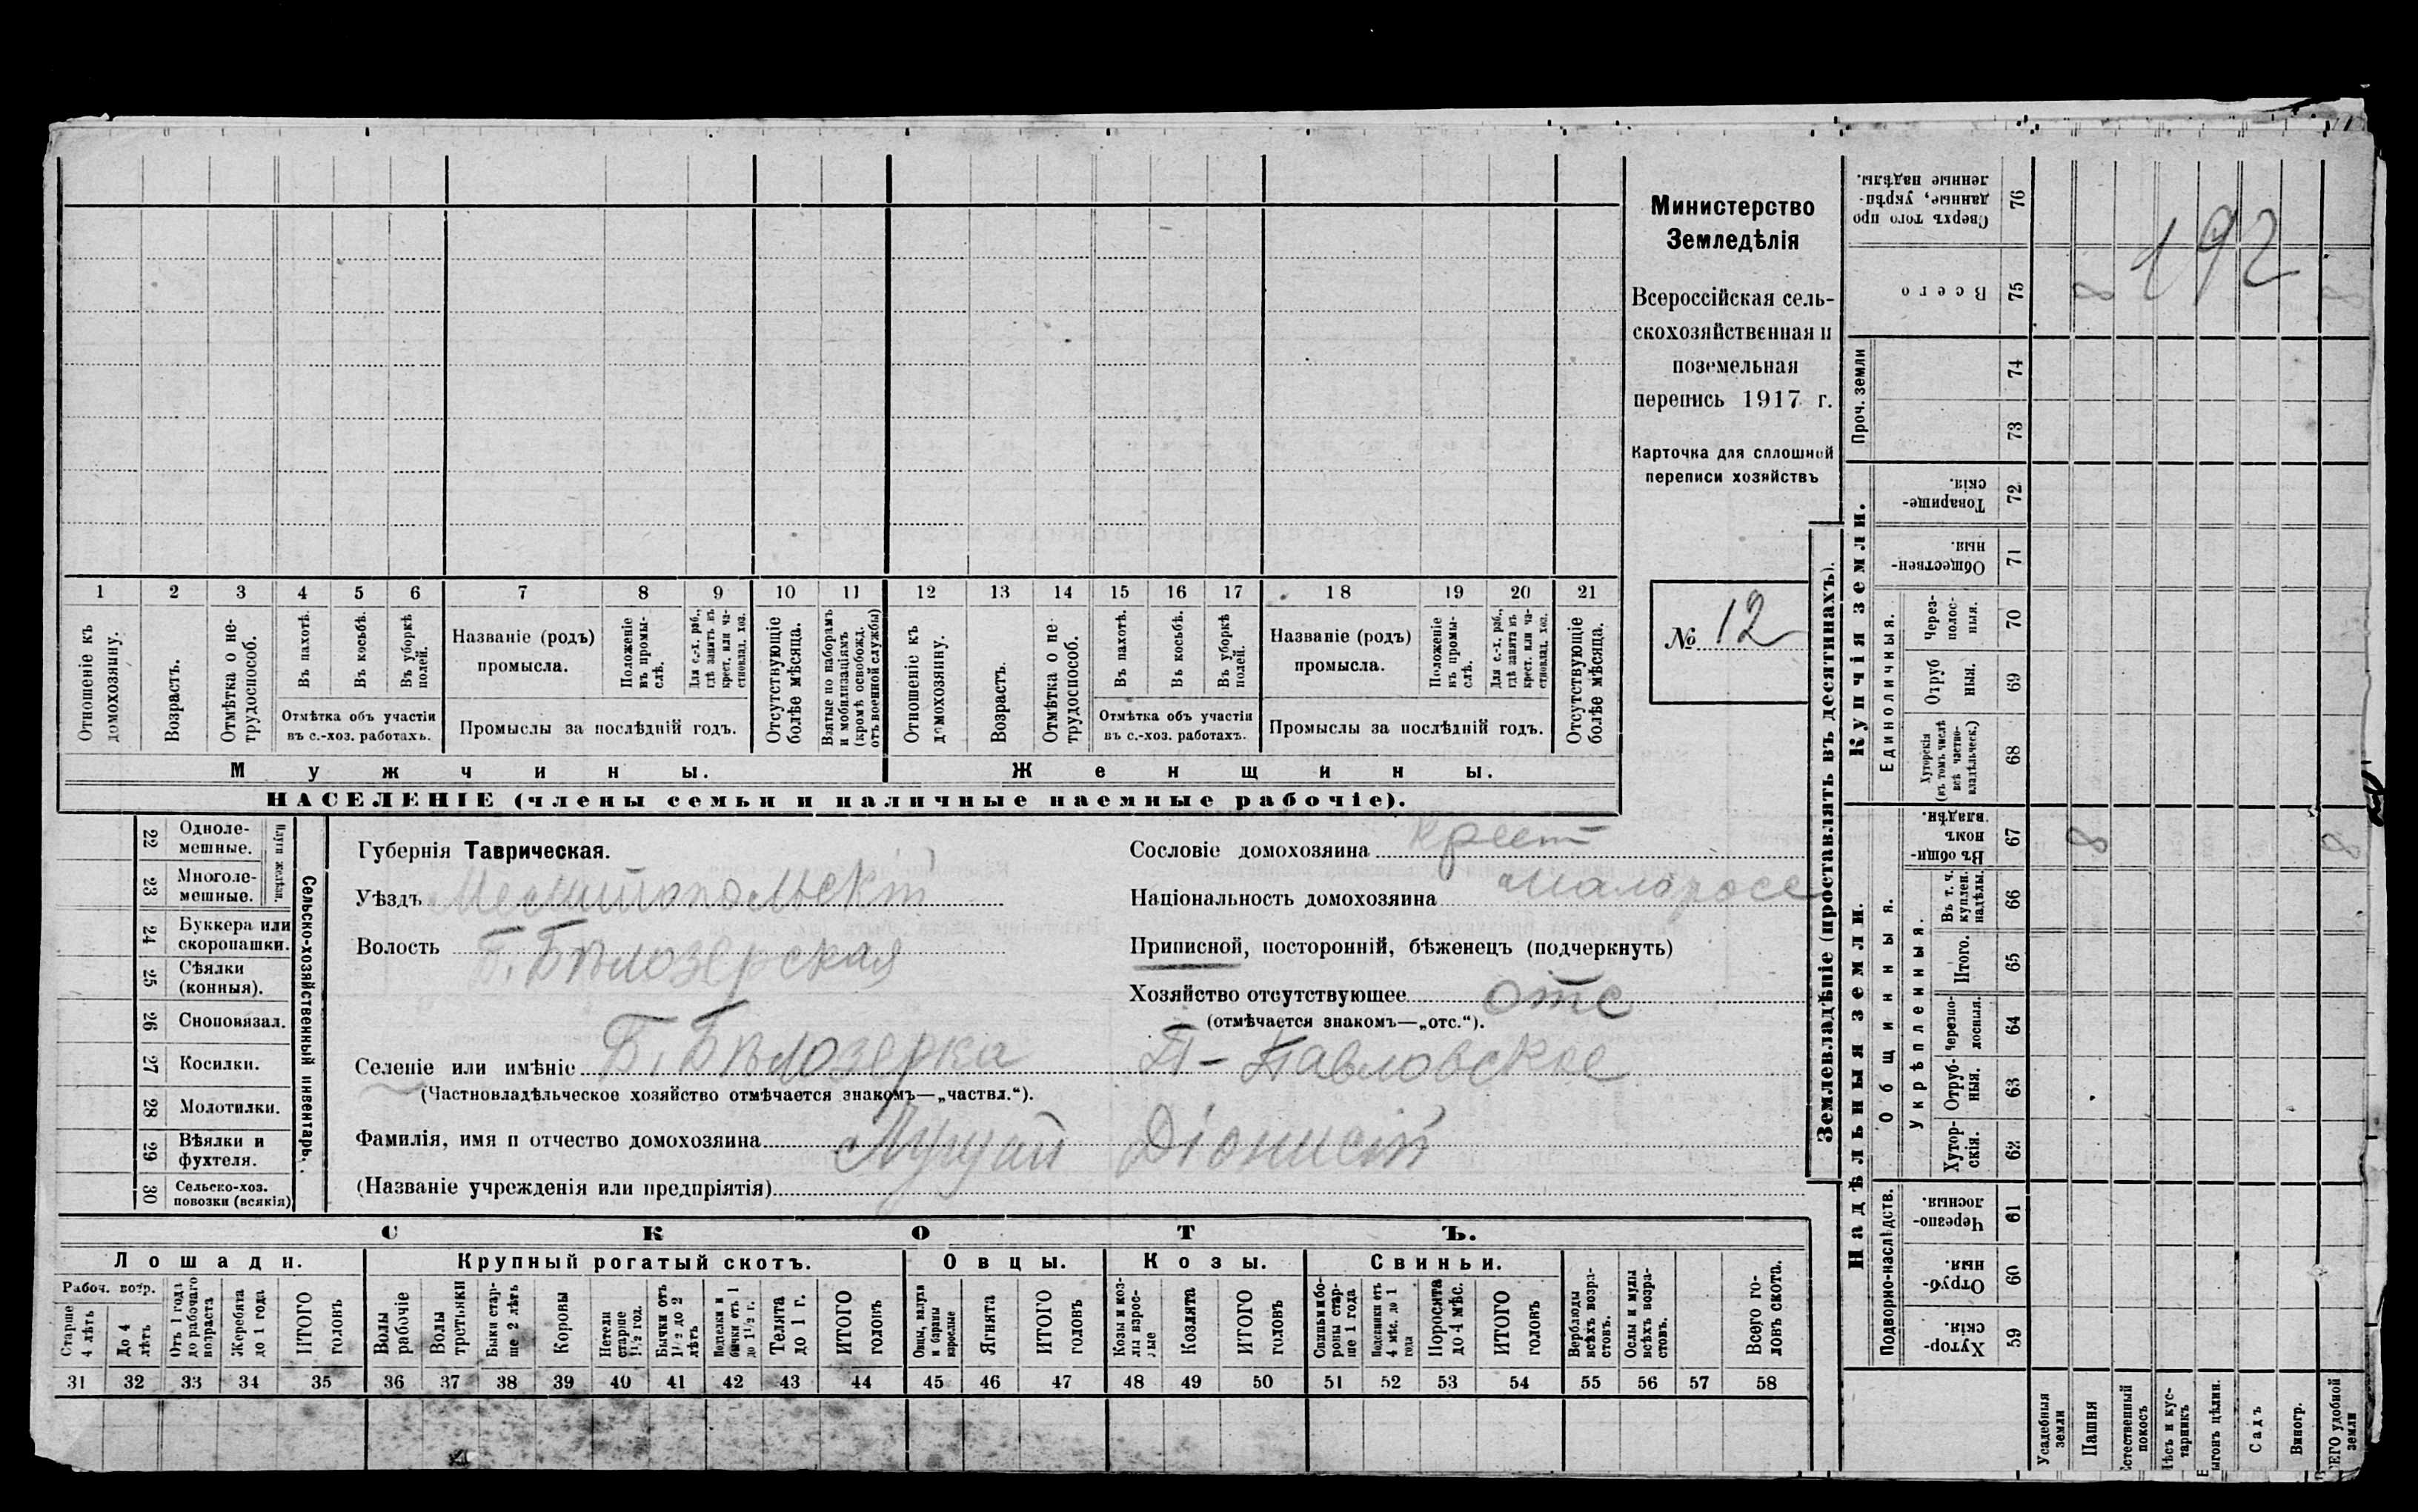 Министерство
Земледѣлія
Всероссійская сель-
скохозяйственная и
поземельная
перепись 1917 г.
Карточка для сплошной
переписи хозяйствъ
№ 12
1 2 3 4 5 6 7 8 9 10 11 12 13 14 15 16 17 18 19 20 21
Отношеніе къ домохозяину.
Возрастъ.
Отмѣтка о не-трудоспособ.
Въ пахотѣ.
Въ косьбѣ.
Въ уборкѣ полей.
Отмѣтка объ участіи
въ с.-хоз. работахъ.
Названіе (родъ)
промысла.
Положеніе въ промы-слѣ.
Для с.-х. раб., гдѣ занятъ въ крест. или ча-стновлад. хоз.
Промыслы за послѣдній годъ.
Отсутствующіе болѣе мѣсяца.
Взятые по наборамъ и мобилизаціямъ (кромѣ освобожд. отъ военной службы)
Отношеніе къ домохозяину.
Возрастъ.
Отмѣтка о не-трудоспособ.
Въ пахотѣ.
Въ косьбѣ.
Въ уборкѣ полей.
Отмѣтка объ участіи
въ с.-хоз. работахъ.
Названіе (родъ)
промысла.
Положеніе въ промы-слѣ.
Для с.-х. раб., гдѣ занята въ крест. или ча-стновлад. хоз.
Промыслы за послѣдній годъ.
Отсутствующіе болѣе мѣсяца.
Мужчины. Женщины.
НАСЕЛЕНІЕ (члены семьи и наличные наемные рабочіе).
22 Одноле-мешные.
23 Многоле-мешные.
Плуги желѣзн.
24 Буккера или скоропашки.
25 Сѣялки (конныя).
26 Сноповязал.
27 Косилки.
28 Молотилки.
29 Вѣялки и фухтеля.
30 Сельско-хоз. повозки (всякія)
Сельско-хозяйственный инвентарь.
Губернія Таврическая.
Уѣздъ Мелитопольскій
Волость Б. Бѣлозерская
Сословіе домохозяина крест
Національность домохозяина малоросс
Приписной, посторонній, бѣженецъ (подчеркнуть)
Хозяйство отсутствующее отс
(отмѣчается знакомъ—„отс.“).
Селеніе или имѣніе Б. Бѣлозерка П-Павловское
(Частновладѣльческое хозяйство отмѣчается знакомъ—„частвл.“).
Фамилія, имя и отчество домохозяина Діонисій
(Названіе учрежденія или предпріятія)
СКОТЪ.
Лошади. Крупный рогатый скотъ. Овцы. Козы. Свиньи.
Рабоч. возр.
Старше 4 лѣтъ
До 4 лѣтъ
Отъ 1 года до рабочаго возраста
Жеребята до 1 года
ИТОГО головъ
Волы рабочіе
Волы третьяки
Быки стар-ше 2 лѣтъ
Коровы
Нетели старше 1½ год.
Бычки отъ 1½ до 2 лѣтъ
Подтелки и бычки отъ 1 до 1½ г.
Телята до 1 г.
ИТОГО головъ
Овцы, валухи и бараны взрослые
Ягнята
ИТОГО головъ
Козы и коз-лы взрос-лые
Козлята
ИТОГО головъ
Свиньи и бо-ровы стар-ше 1 года
Подсвинки отъ 4 мѣс. до 1 года
Поросята до 4 мѣс.
ИТОГО головъ
Верблюды всѣхъ возра-стовъ.
Ослы и мулы всѣхъ возра-стовъ.
Всего го-ловъ скота.
31 32 33 34 35 36 37 38 39 40 41 42 43 44 45 46 47 48 49 50 51 52 53 54 55 56 57 58
Землевладѣніе (проставлять въ десятинахъ).
Сверхъ того про данные, укрѣп-ленные надѣлы. 76
192
Всего 75 8 8
Проч. земли 74 73
Купчія земли.
Товарище-скія. 72
Обществен-ныя. 71
Единоличныя.
Через-полос-ныя. 70
Отруб ныя. 69
Хуторскія (въ томъ числѣ всѣ частно-владѣльческ.) 68
Надѣльныя земли.
Общинныя.
Въ общи-номъ владѣн. 67 8 8
Укрѣпленныя.
Въ т. ч. куплен. надѣлы. 66
Итого. 65
Черезпо-лосныя. 64
Отруб-ныя. 63
Хутор-скія. 62
Подворно-наслѣдств.
Черезпо-лосныя. 61
Отруб-ныя. 60
Хутор-скія. 59
Усадебныя земли
Пашня
Естественный покосъ
Лѣсъ и кус-тарникъ
Выгонъ цѣлин.
Садъ
Виногр.
ВСЕГО удобной земли